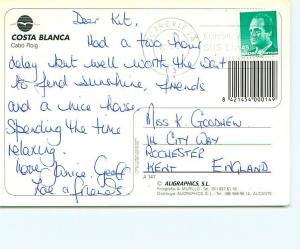 COSTA BLANCA
Cabo Roig
Dear Kit,
Had a two hour
delay but well worth the wait
to find sunshine, friends
and a nice house.
Spending the time
relaxing.
love
& friends.
MISS K GOODHEW
114 CITY WAY
ROCHESTER
KENT ENGLAND
8 421454 000149
A 347
© AUGRAPHICS, S.L.